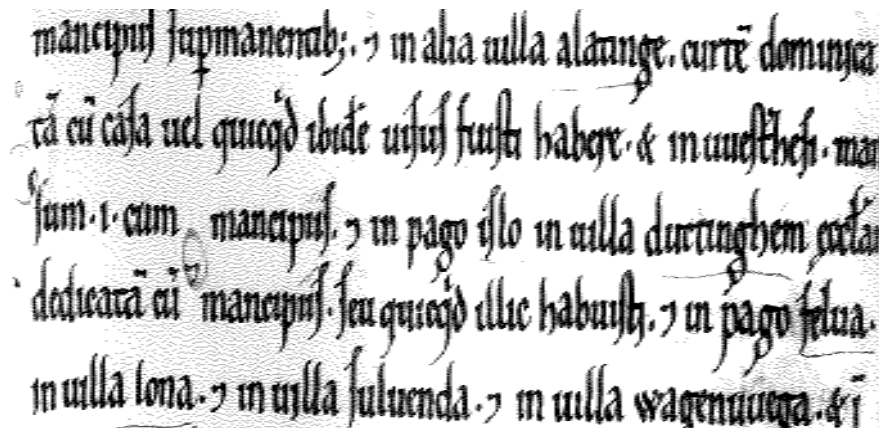 mancipiis sup̱manentib;. ⁊ in alia uilla alatinge. curtē dominica
tā cū casa uel quicq̇d ibidē uisus fuisti habere. & in uuesťhesi. man
sum .i. cum mancipiis. ⁊ in pago islo in uilla durtinghem eccl̄am
dedicatā cū mancipiis. seu quicq̇d illic habuisti. ⁊ in pago felua.
in uilla lona. ⁊ in uilla suluenda. ⁊ in uilla wagenuuega. & ī